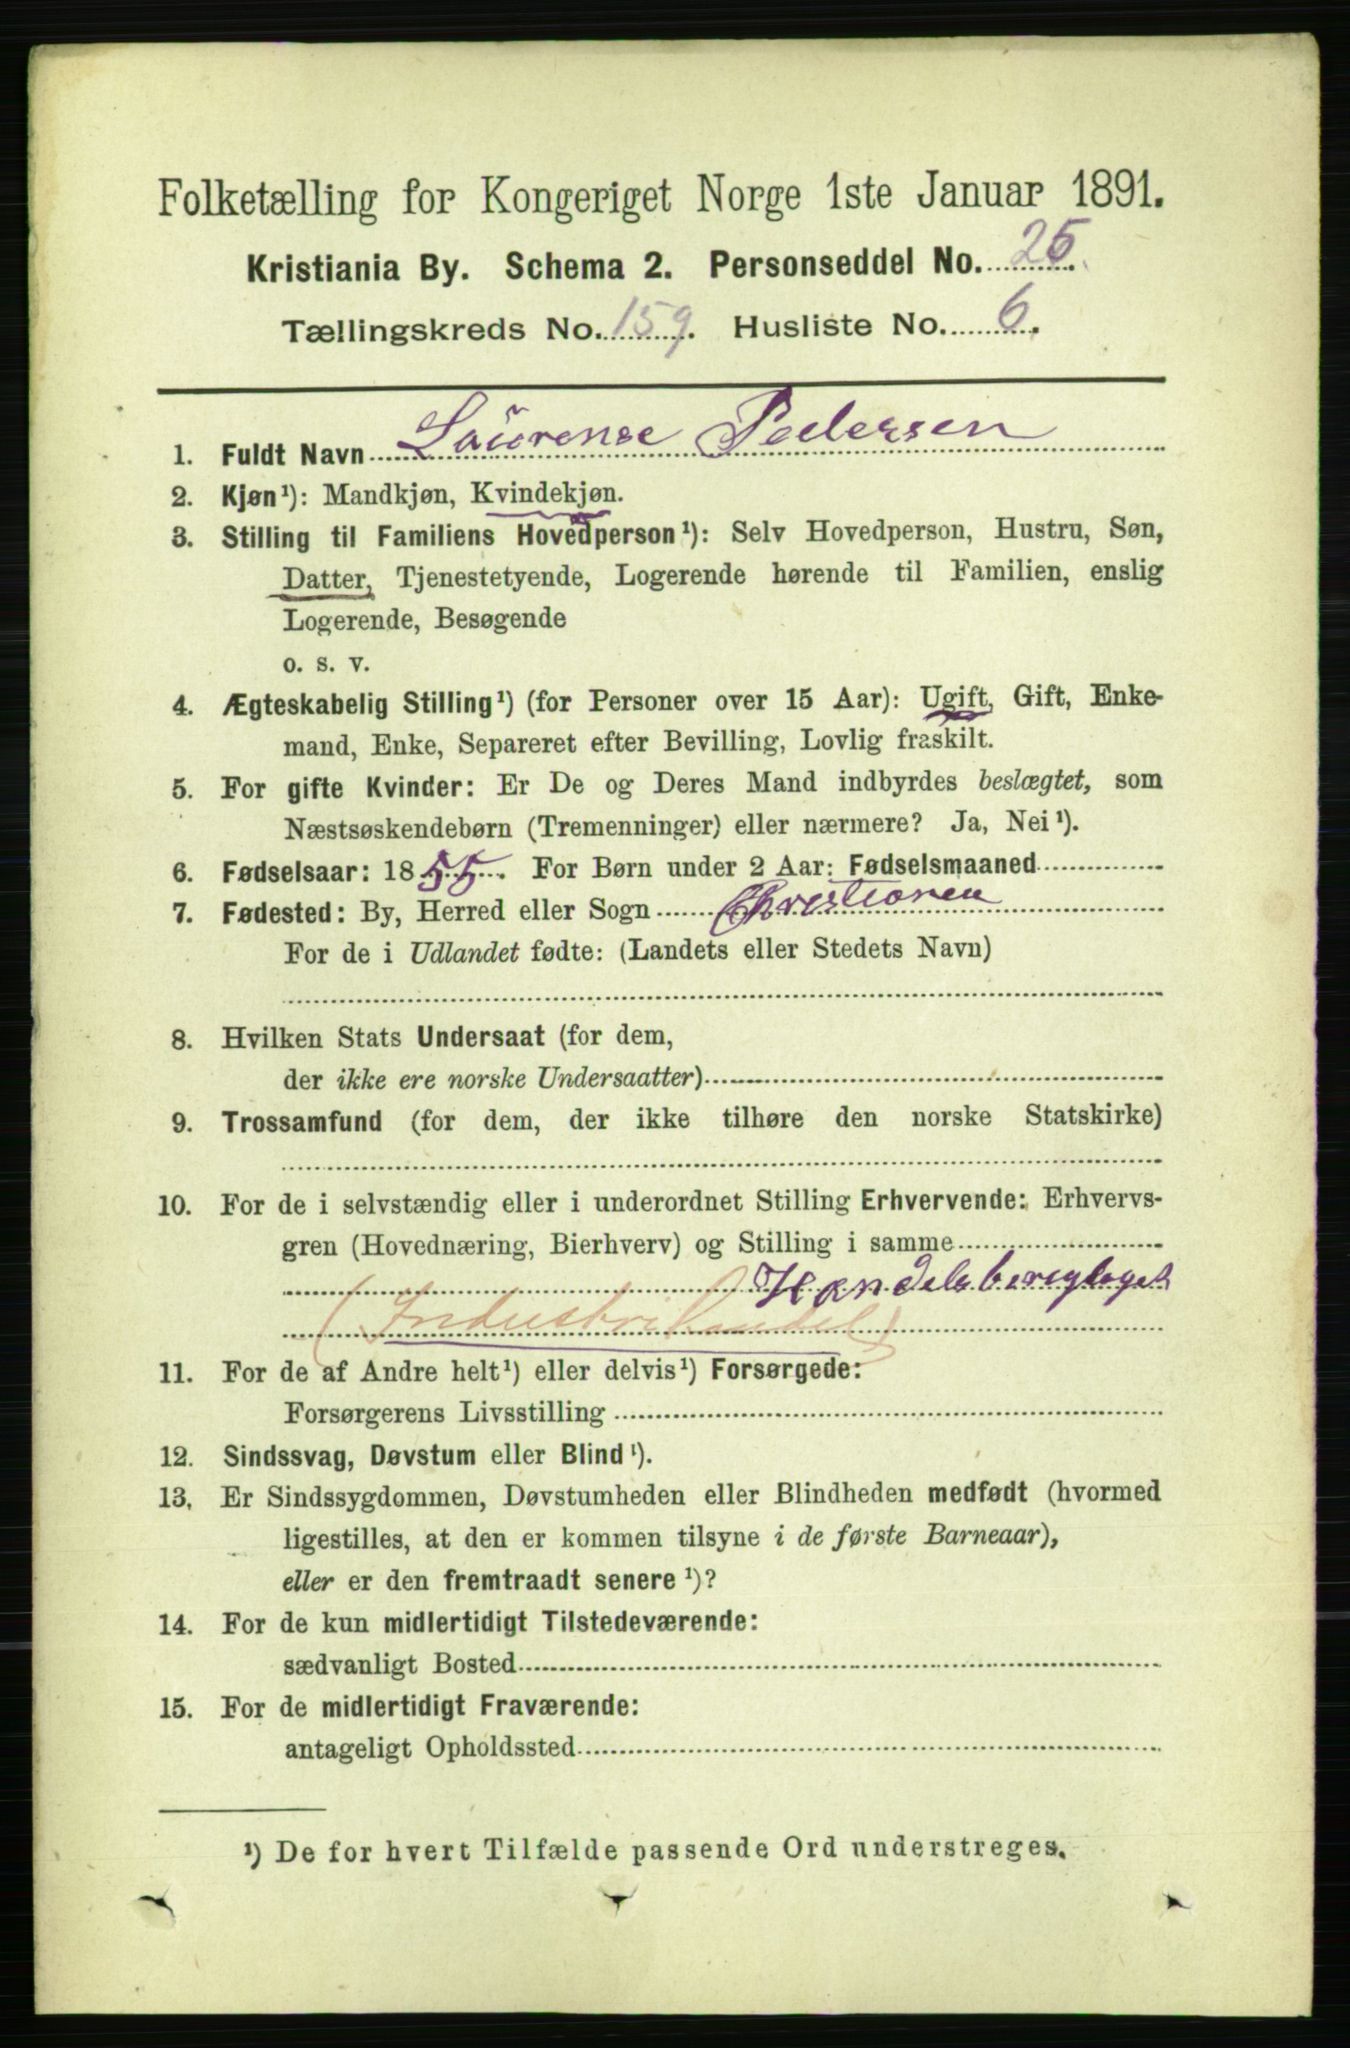 Folketælling for Kongeriget Norge 1ste Januar 1891.
Kristiania By. Schema 2. Personseddel No. 25.
Tællingskreds No. 159. Husliste No. 6.
1. Fuldt Navn Laurense Pedersen
2. Kjøn¹): Mandkjøn, Kvindekjøn.
3. Stilling til Familiens Hovedperson¹): Selv Hovedperson, Hustru, Søn,
Datter, Tjenestetyende, Logerende hørende til Familien, enslig
Logerende, Besøgende
o. s. v.
4. Ægteskabelig Stilling¹) (for Personer over 15 Aar): Ugift, Gift, Enke-
mand, Enke, Separeret efter Bevilling, Lovlig fraskilt.
5. For gifte Kvinder: Er De og Deres Mand indbyrdes beslægtet, som
Næstsøskendebørn (Tremenninger) eller nærmere? Ja, Nei¹).
6. Fødselsaar: 1855. For Børn under 2 Aar: Fødselsmaaned
7. Fødested: By, Herred eller Sogn
For de i Udlandet fødte: (Landets eller Stedets Navn)
8. Hvilken Stats Undersaat (for dem,
der ikke ere norske Undersaatter)
9. Trossamfund (for dem, der ikke tilhøre den norske Statskirke)
10. For de i selvstændig eller i underordnet Stilling Erhvervende: Erhvervs-
gren (Hovednæring, Bierhverv) og Stilling i samme
(Industrihandel)
11. For de af Andre helt¹) eller delvis¹) Forsørgede:
Forsørgerens Livsstilling
12. Sindssvag, Døvstum eller Blind¹).
13. Er Sindssygdommen, Døvstumheden eller Blindheden medfødt (hvormed
ligestilles, at den er kommen tilsyne i de første Barneaar),
eller er den fremtraadt senere¹)?
14. For de kun midlertidigt Tilstedeværende:
sædvanligt Bosted
15. For de midlertidigt Fraværende:
antageligt Opholdssted
¹) De for hvert Tilfælde passende Ord understreges.